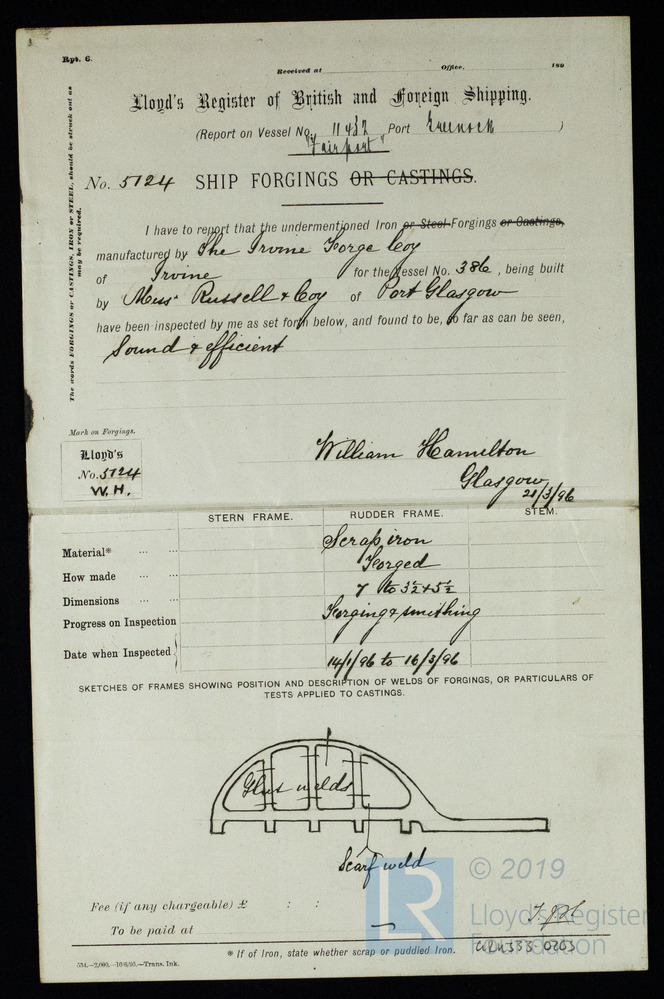 Rpt. 6.
Received at Office. 189
Lloyd's Register of British and Foreign Shipping.
(Report on Vessel No. 11432 Port Greenock )
"Fairport"
No. 5124 SHIP FORGINGS OR CASTINGS.
The words FORGINGS or CASTINGS, IRON or STEEL, should be struck out as may be required.
I have to report that the undermentioned Iron or Steel Forgings or Castings,
manufactured by The Irvine Forge Coy
of Irvine for the Vessel No. 386, being built
by Mess<sup>rs</sup> Russell & Coy of Port Glasgow
have been inspected by me as set forth below, and found to be, so far as can be seen,
Sound & efficient
Mark on Forgings.
Lloyd's
No. 5124
W.H.
William Hamilton
Glasgow
21/3/96
STERN FRAME. RUDDER FRAME. STEM.
Material* ... ... Scrap iron
How made ... ... Forged
Dimensions ... ... 7 to 3½ + 5½
Progress on Inspection Forging & smithing
Date when Inspected 14/1/96 to 16/3/96
SKETCHES OF FRAMES SHOWING POSITION AND DESCRIPTION OF WELDS OF FORGINGS, OR PARTICULARS OF
TESTS APPLIED TO CASTINGS.
Glut welds
Scarf weld
Fee (if any chargeable) £ : :
To be paid at
* If of Iron, state whether scrap or puddled Iron.
534.—2,000.—10/6/95.—Trans. Ink.
© 2019
LR
Lloyd's Register
Foundation